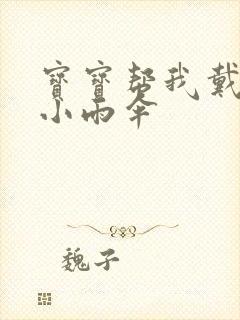 寶寶幫我戴
小雨傘
魏子